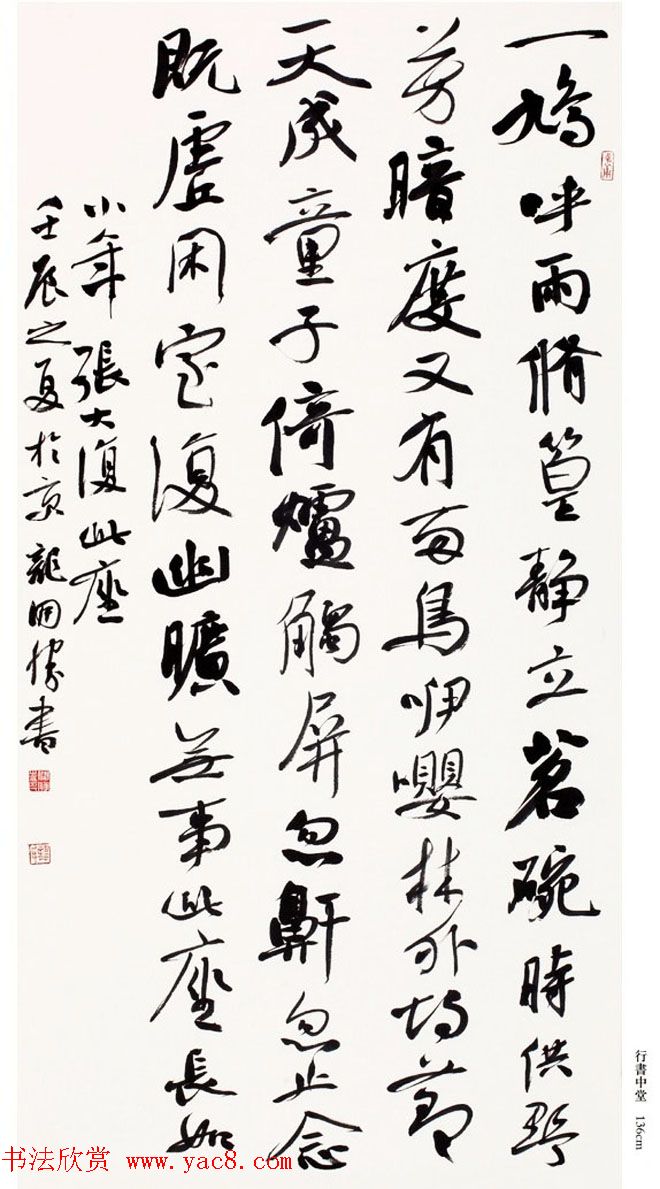 一鳩呼雨脩篁靜立茗碗時供野
芳暗度又有兩鳥咿嚶林外均節
天成童子倚爐觸屏忽鼾忽止念
既虛閑室復幽曠無事此座長如
小年 張大復此座
壬辰之夏於京 龍開勝書
行書中堂 136cm
书法欣赏 www.yac8.com